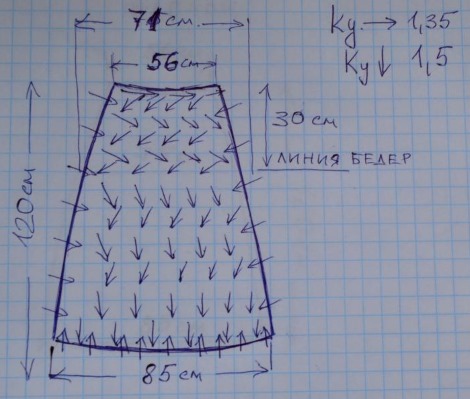 71 см.
Ку. → 1,35
56 см
Ку ↓ 1,5
30 см
ЛИНИЯ БЕДЕР
120 см
85 см